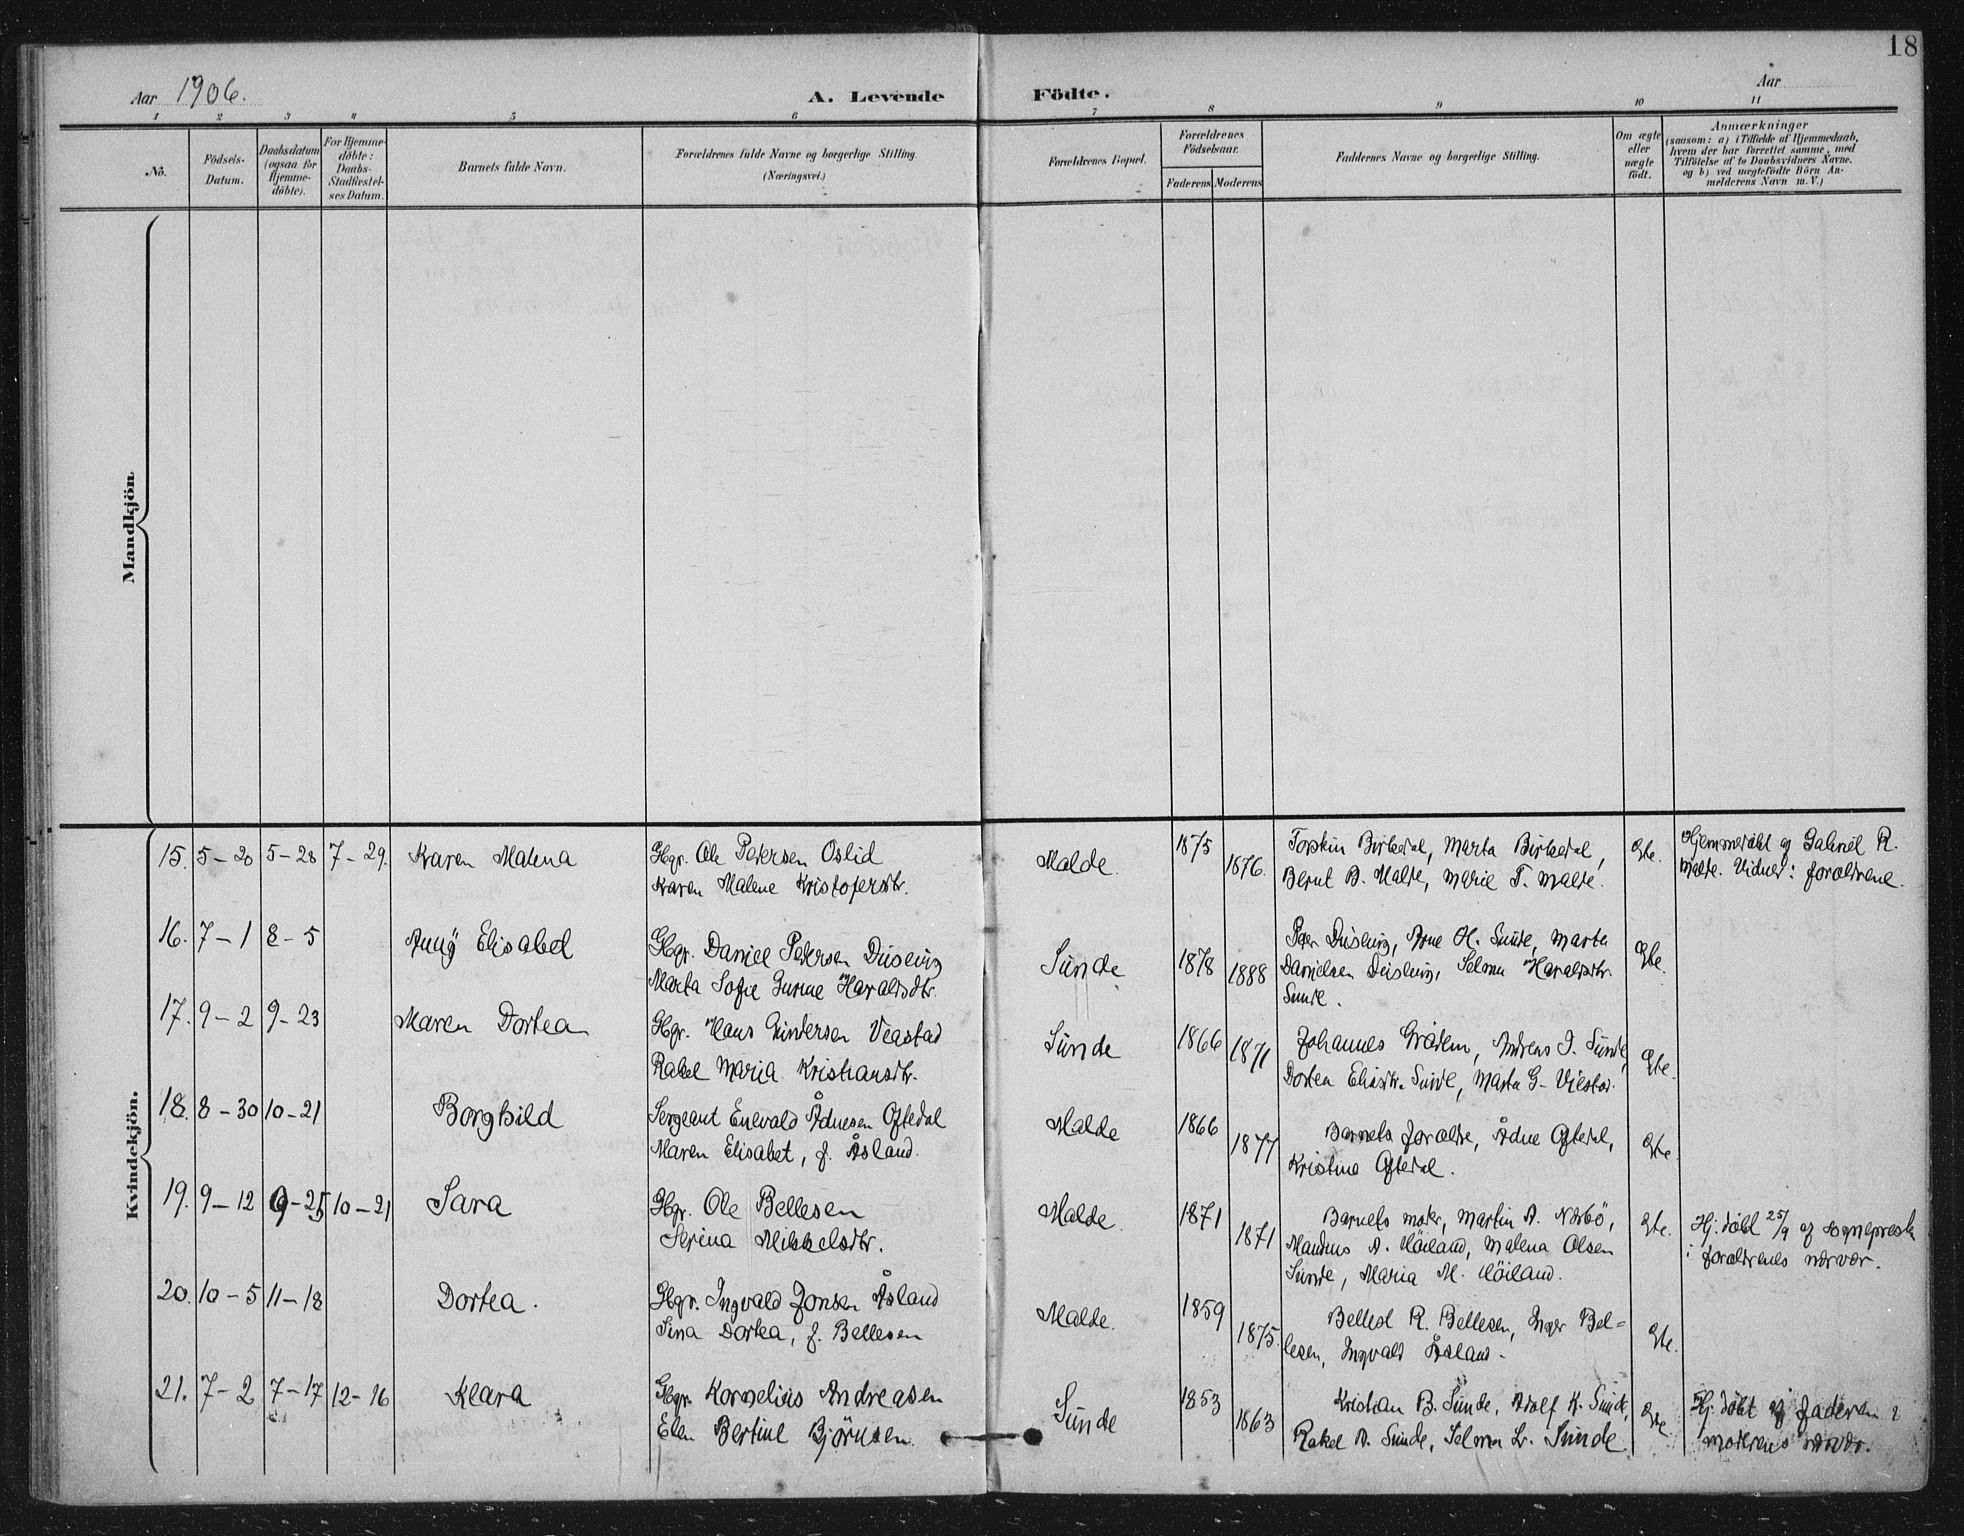 18
Aar 1906.
A. Levende Födte.
Aar
1 2 3 4 5 6 7 8 9 10 11
No.
Födsels-Datum.
Daabsdatum (ogsaa for Hjemme-döbte).
For Hjemme-döbte: Daabs-Stadfæstel-ses Datum.
Barnets fulde Navn.
Forældrenes fulde Navne og borgerlige Stilling. (Næringsvei.)
Forældrenes Bopæl.
Forældrenes Födselsaar.
Faderens Moderens
Faddernes Navne og borgerlige Stilling.
Om ægte eller uægte födt.
Anmærkninger
(saasom: a) i Tilfælde af Hjemmedaab,
hvem der har forrettet samme, med
Tilföielse af to Daabsvidners Navne.
og b) ved uægtefödte Börn An-
melderens Navn m. V.)
Mandkjön.
Kvindekjön.
15. 5-20 5-28 7-29. Karen Malena Gbgr. Ole Pedersen Oslid Malde. 1875 Torskin Birkedal, Marta Birkedal, Gte. Hjemmedøbt af Gabriel R.
Karen Malene Kristofersdtr. 1876. Bernt B. Malde, Marie T. Malde. Malde. Vidner: forældrene.
16. 7-1 8-5 Anny Elisabet Gbgr. Daniel Pedersen Sunde 1878 Arne H. Sunde, Marta Gte.
Marta Sofie Gurine Haraldsdtr. 1888 Danielsen Selma Haraldsdtr.
Sunde.
17. 9-2 9-23 Maren Dortea Gbgr. Hans Gundersen Sunde 1866 Johannes Grødem, Andreas I. Sunde, Gte.
Rakel Maria Kristiansdtr. 1871 Dortea Eliasdtr. Sunde, Marta G.
18. 8-30 10-21 Borghild Sergeant Enevald Ådnesen Oftedal Malde 1866 Barnets forældre, Ådne Oftedal, Gte.
Maren Elisabet, f. Åsland. 1877 Kristine Oftedal.
19. 9-12 9-25 10-21 Sara Gbgr. Ole Bellesen Malde. 1871 Barnets moder, Martin A. Nærbö, Gte. Hj. døbt 25/9 af sognepresten
Serina Mikkelsdtr. 1871 Maudius A. Höiland, Malena Olsen i forældrenes nærvær.
Sunde, Maria M. Höiland.
20. 10-5 11-18 Dortea. Gbgr. Ingvald Jonsen Åsland Malde. 1859 Bellest R. Bellesen, Inger Bel=
Sina Dortea, f. Bellesen 1875. lesen, Ingvald Åsland. Gte.
21. 7-2 7-17 12-16 Klara Gbgr. Kornelius Andreasen Sunde 1853 Kristian B. Sunde, Adolf K. Sunde, Gte Hj. døbt af faderen i
Elen Bertine Bjørnsen. 1863 Rakel A. Sunde, Selma L. Sunde moderens nærvær.